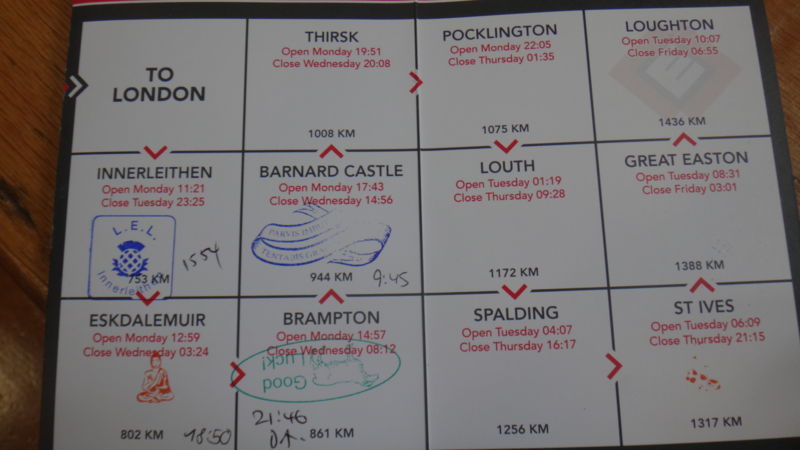 TO
LONDON
INNERLEITHEN
Open Monday 11:21
Close Tuesday 23:25
L.E.L.
Innerleithen
753 KM
1554
ESKDALEMUIR
Open Monday 12:59
Close Wednesday 03:24
802 KM
18:50
BRAMPTON
Open Monday 14:57
Close Wednesday 08:12
Good
Luck!
21:46
861 KM
BARNARD CASTLE
Open Monday 17:43
Close Wednesday 14:56
PARVIS IMBU
TENTABIS GRA
944 KM
9:45
THIRSK
Open Monday 19:51
Close Wednesday 20:08
1008 KM
POCKLINGTON
Open Monday 22:05
Close Thursday 01:35
1075 KM
LOUTH
Open Tuesday 01:19
Close Thursday 09:28
1172 KM
SPALDING
Open Tuesday 04:07
Close Thursday 16:17
1256 KM
ST IVES
Open Tuesday 06:09
Close Thursday 21:15
1317 KM
GREAT EASTON
Open Tuesday 08:31
Close Friday 03:01
1388 KM
LOUGHTON
Open Tuesday 10:07
Close Friday 06:55
1436 KM